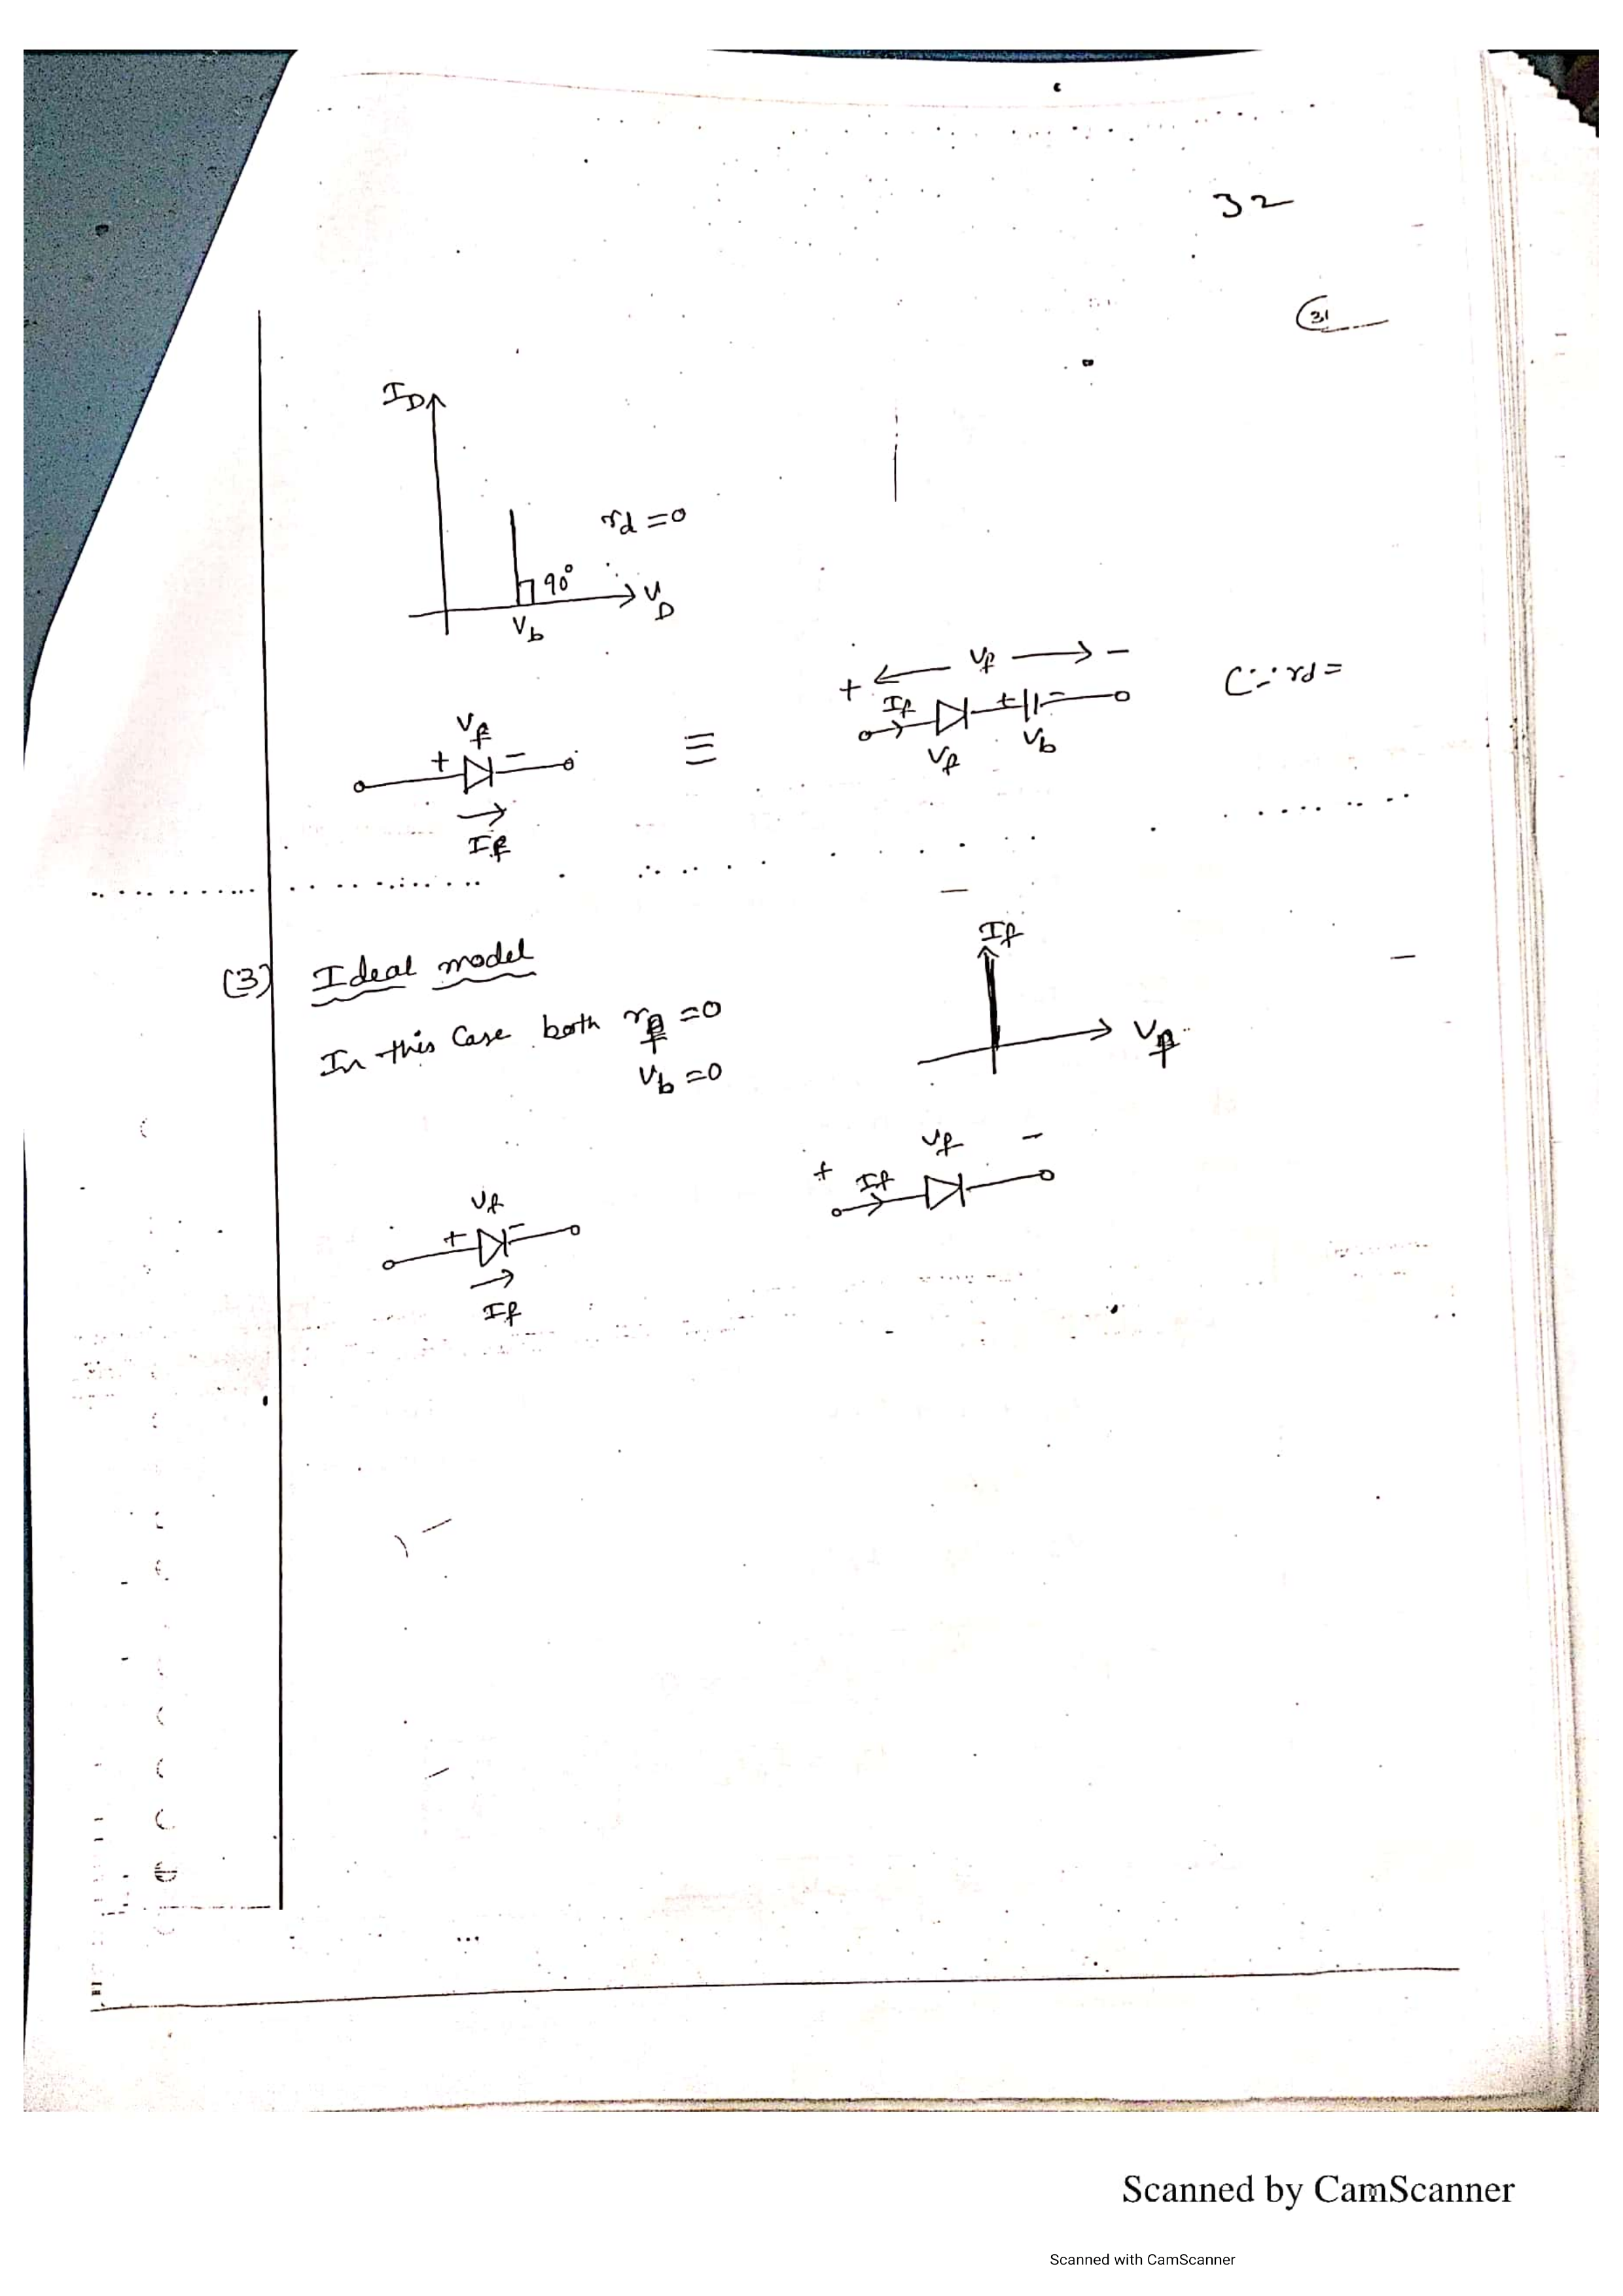 32
31
I_D
r_d = 0
90°
V_D
V_b
+ ← V_f → -
(∵ r_d =
I_f + -
V_f V_b
V_f
+ -
≡
I_f
(3) Ideal model
In this Case both r_f = 0
V_b = 0
I_f
V_f
V_f
+ -
I_f
+ V_f -
I_f
Scanned by CamScanner
Scanned with CamScanner